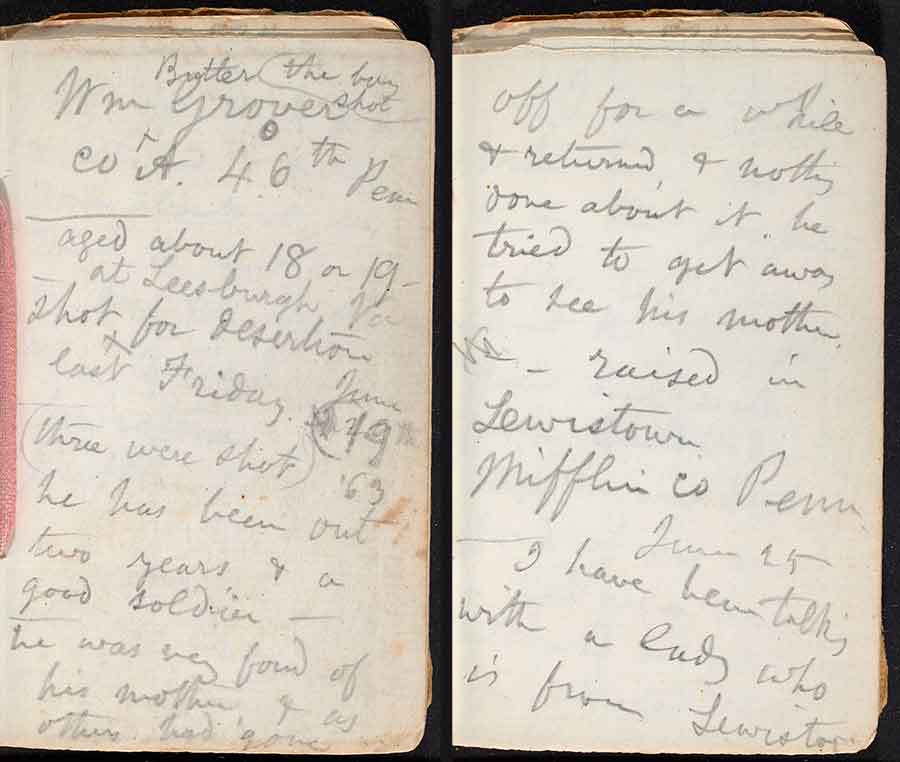 Butter (the boy
Wm Grover shot
co A. 46th Penn
aged about 18 or 19 –
– at Leesburgh Va
shot for desertion
last Friday June
(19th
(three were shot) '63
he has been out
two years & a
good soldier –
he was very fond of
his mother, & as
others had gone
off for a while
& returned, & nothing
done about it, he
tried to get away
to see his mother.
– raised in
Lewistown
Mifflin co Penn
June 25
I have been talking
with a lady who
is from Lewistow